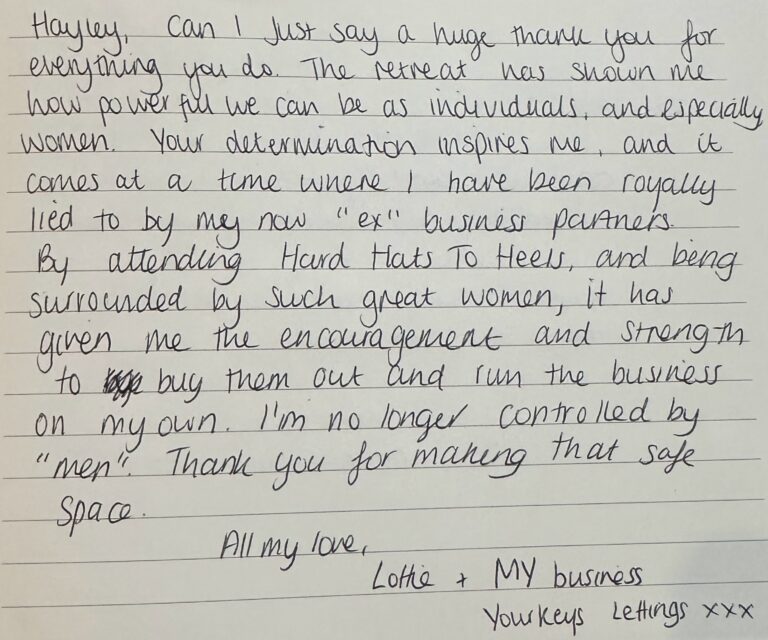 Hayley, Can I Just say a huge thank you for
everything you do. The retreat has shown me
how powerful we can be as individuals, and especially
women. Your determination inspires me, and it
comes at a time where I have been royally
lied to by my now "ex" business partners.
By attending Hard Hats To Heels, and being
surrounded by such great women, it has
given me the encouragement and strength
to buy them out and run the business
on my own. I'm no longer controlled by
"men". Thank you for making that safe
space.
All my love,
Lottie + MY business
Yourkeys Lettings xxx